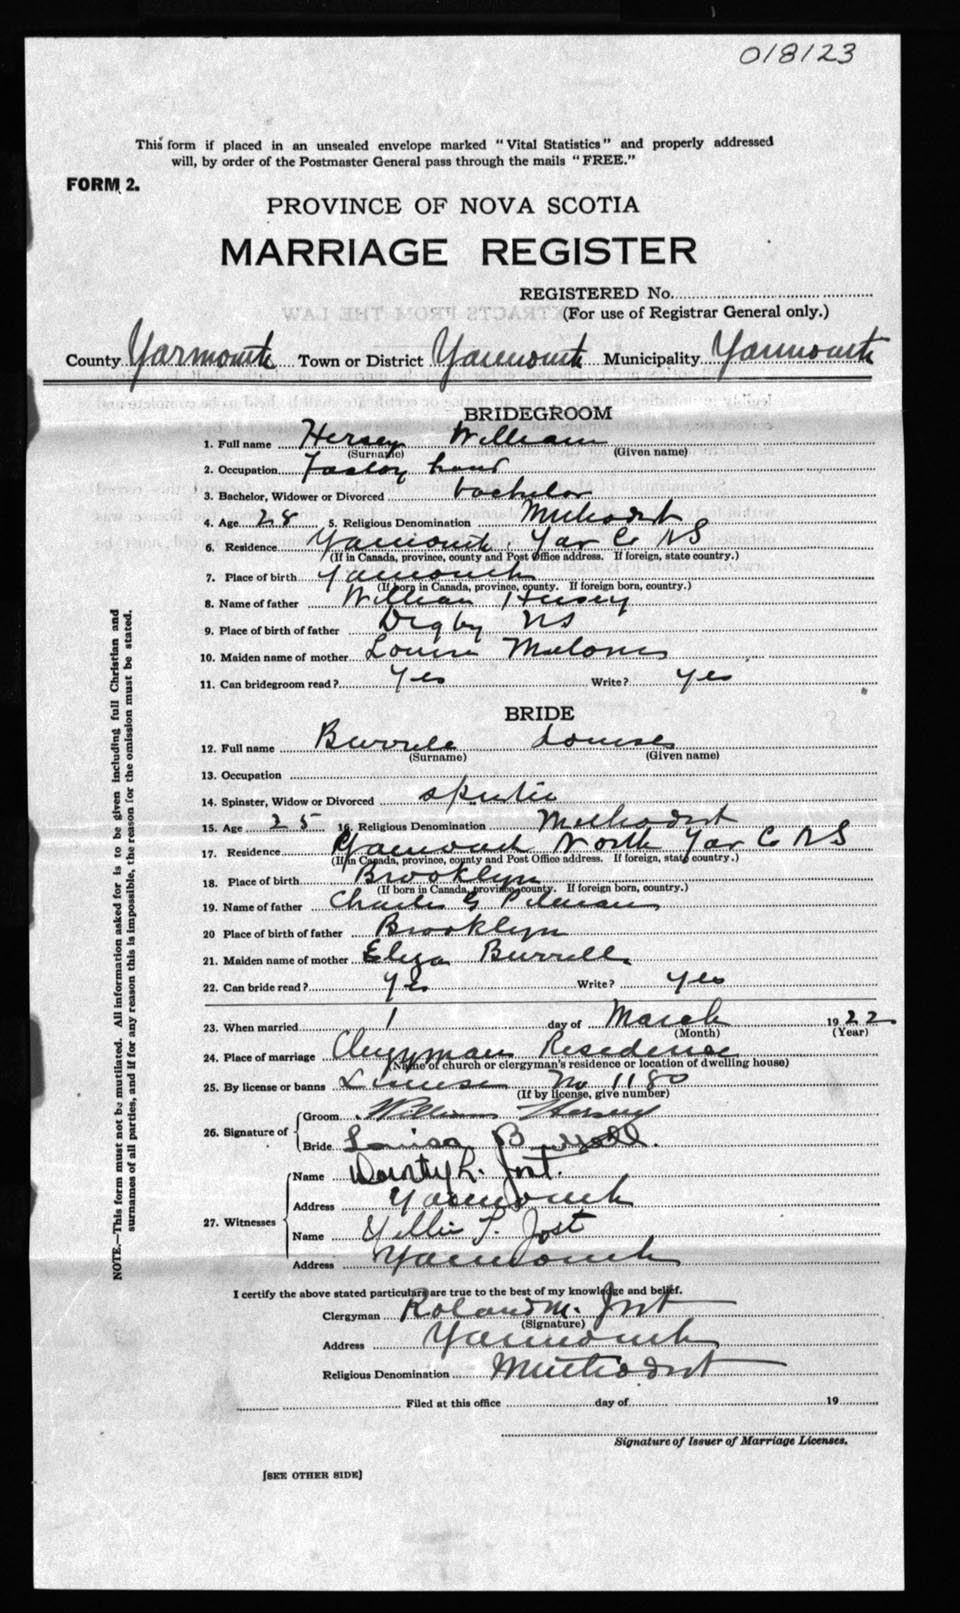 018123
This form if placed in an unsealed envelope marked "Vital Statistics" and properly addressed
will, by order of the Postmaster General pass through the mails "FREE."
FORM 2.
PROVINCE OF NOVA SCOTIA
MARRIAGE REGISTER
REGISTERED No.
(For use of Registrar General only.)
County Yarmouth Town or District Yarmouth Municipality Yarmouth
BRIDEGROOM
1. Full name Hersey William
(Surname) (Given name)
2. Occupation Factory hand
3. Bachelor, Widower or Divorced bachelor
4. Age 28 5. Religious Denomination Methodist
6. Residence Yarmouth Yar Co NS
(If in Canada, province, county and Post Office address. If foreign, state country.)
7. Place of birth Yarmouth
(If born in Canada, province, county. If foreign born, country.)
8. Name of father William Hersey
9. Place of birth of father Digby NS
10. Maiden name of mother Louise
11. Can bridegroom read? Yes Write? yes
BRIDE
12. Full name Burrell Louise
(Surname) (Given name)
13. Occupation
14. Spinster, Widow or Divorced
15. Age 25 16. Religious Denomination Methodist
17. Residence Yarmouth North Yar Co NS
(If in Canada, province, county and Post Office address. If foreign, state country.)
18. Place of birth Brooklyn
(If born in Canada, province, county. If foreign born, country.)
19. Name of father Charles G
20 Place of birth of father Brooklyn
21. Maiden name of mother Eliza Burrell
22. Can bride read? yes Write? yes
23. When married 1 day of March 1922
(Month) (Year)
24. Place of marriage Clergyman Residence
(Name of church or clergyman's residence or location of dwelling house)
25. By license or banns License No 1180
(If by license, give number)
26. Signature of Groom William Hersey
Bride Louisa Burrell.
27. Witnesses Name Dorothy L. Jost.
Address Yarmouth
Name T. Jost
Address Yarmouth
I certify the above stated particulars are true to the best of my knowledge and belief.
Clergyman Roland M. Jost
(Signature)
Address Yarmouth
Religious Denomination Methodist
Filed at this office day of 19
Signature of Issuer of Marriage Licenses.
[SEE OTHER SIDE]
NOTE.—This form must not be mutilated. All information asked for is to be given including full Christian and
surnames of all parties, and if for any reason this is impossible, the reason for the omission must be stated.